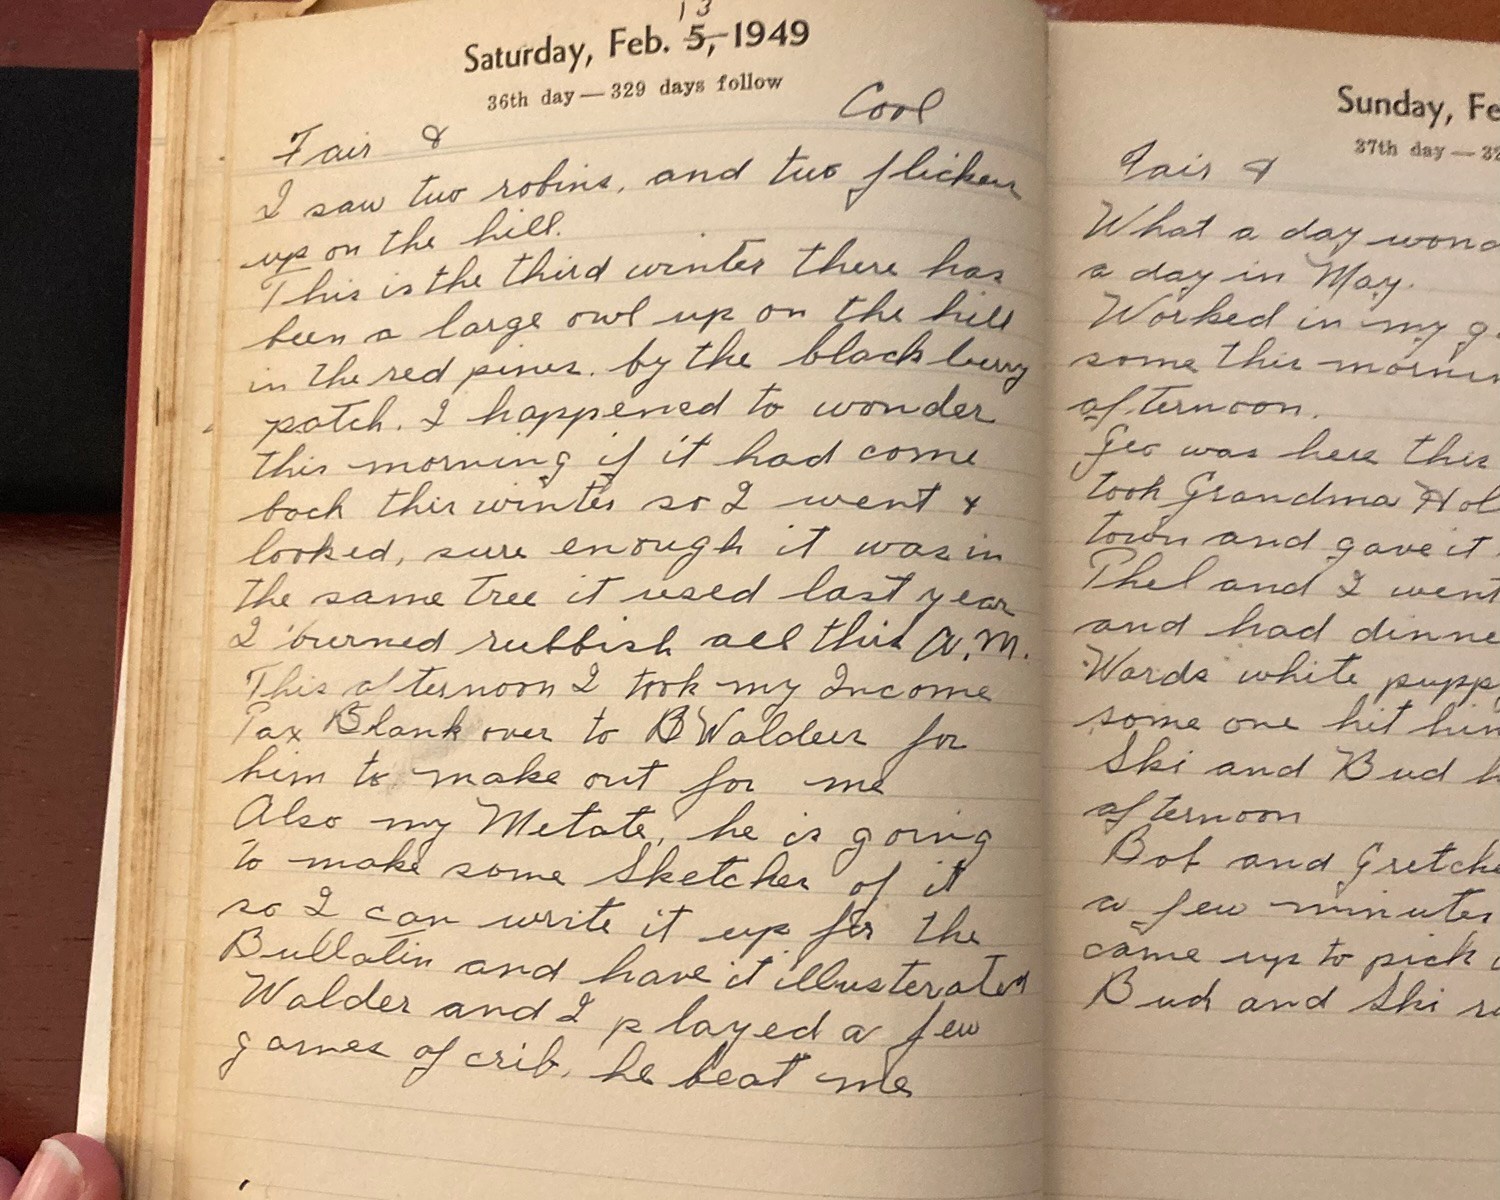 13
Saturday, Feb. 5, 1949
36th day — 329 days follow
Fair & Cool
I saw two robins, and two flickers
up on the hill.
This is the third winter there has
been a large owl up on the hill
in the red pines. by the blackberry
patch. I happened to wonder
this morning if it had come
back this winter so I went &
looked, sure enough it was in
the same tree it used last year
I burned rubbish all this A.M.
This afternoon I took my Income
Tax Blank over to B Walders for
him to make out for me
Also my Metate, he is going
to make some Sketches of it
so I can write it up for the
Bullatin and have it illusterated
Walder and I played a few
games of crib, he beat me
Sunday, Fe
37th day — 32
Fair &
What a day wond
a day in May.
Worked in my g
some this mornin
afternoon.
Geo was here this
took Grandma Hol
town and gave it
Phel and I went
and had dinne
Wards white pupp
some one hit him
Ski and Bud h
afternoon
Bob and Gretche
a few minutes
came up to pick
Bud and Ski